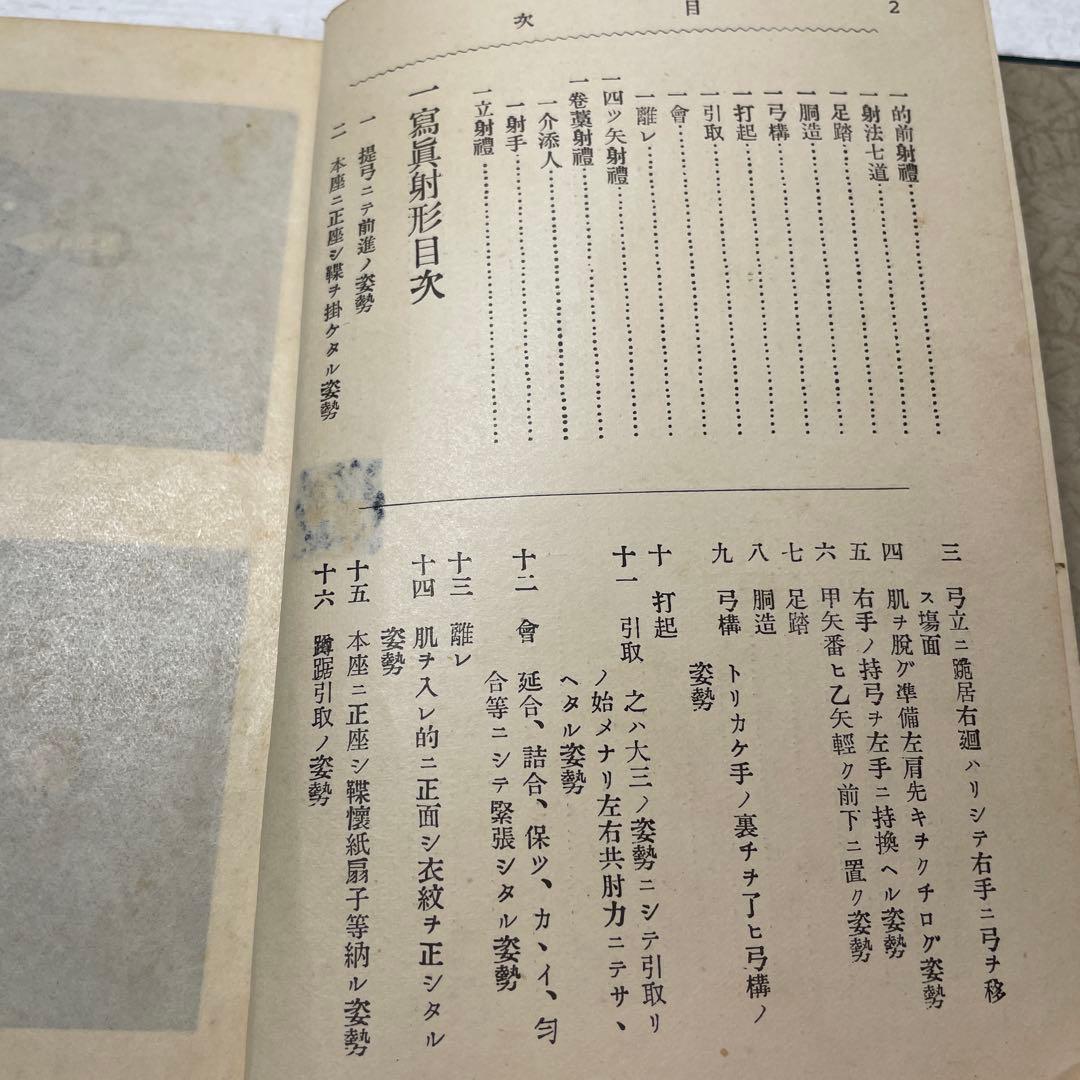 目次
2
一的前射禮
一射法七道
一足踏
一胴造
一弓構
一打起
一引取
一會
一離レ
一四ツ矢射禮
一卷藁射禮
一介添人
一射手
一立射禮
一寫眞射形目次
一 提弓ニテ前進ノ姿勢
二 本座ニ正座シ鞢ヲ掛ケタル姿勢
三 弓立ニ跪居右廻ハリシテ右手ニ弓ヲ移
ス塲面
四 肌ヲ脫グ準備左肩先キヲクチログ姿勢
五 右手ノ持弓ヲ左手ニ持換ヘル姿勢
六 甲矢番ヒ乙矢輕ク前下ニ置ク姿勢
七 足踏
八 胴造
九 弓構 トリカケ手ノ裏チヲ了ヒ弓構ノ
姿勢
十 打起
十一 引取 之ハ大三ノ姿勢ニシテ引取リ
ノ始メナリ左右共肘力ニテサヽ
ヘタル姿勢
十二 會 延合、詰合、保ツ、カヽイ、匀
合等ニシテ緊張シタル姿勢
十三 離レ
十四 肌ヲ入レ的ニ正面シ衣紋ヲ正シタル
姿勢
十五 本座ニ正座シ鞢懷紙扇子等納ル姿勢
十六 蹲踞引取ノ姿勢